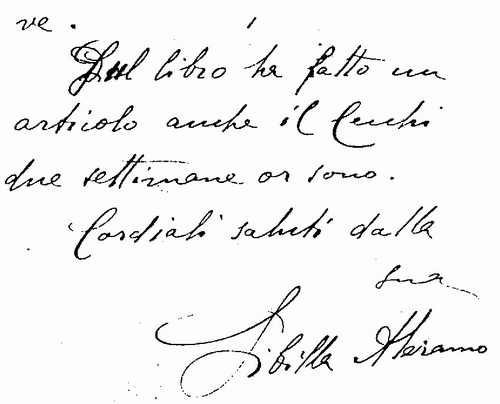 ve.
Sul libro ha fatto un
articolo anche il Cecchi
due settimane or sono.
Cordiali saluti dalla
sua
Sibilla Aleramo